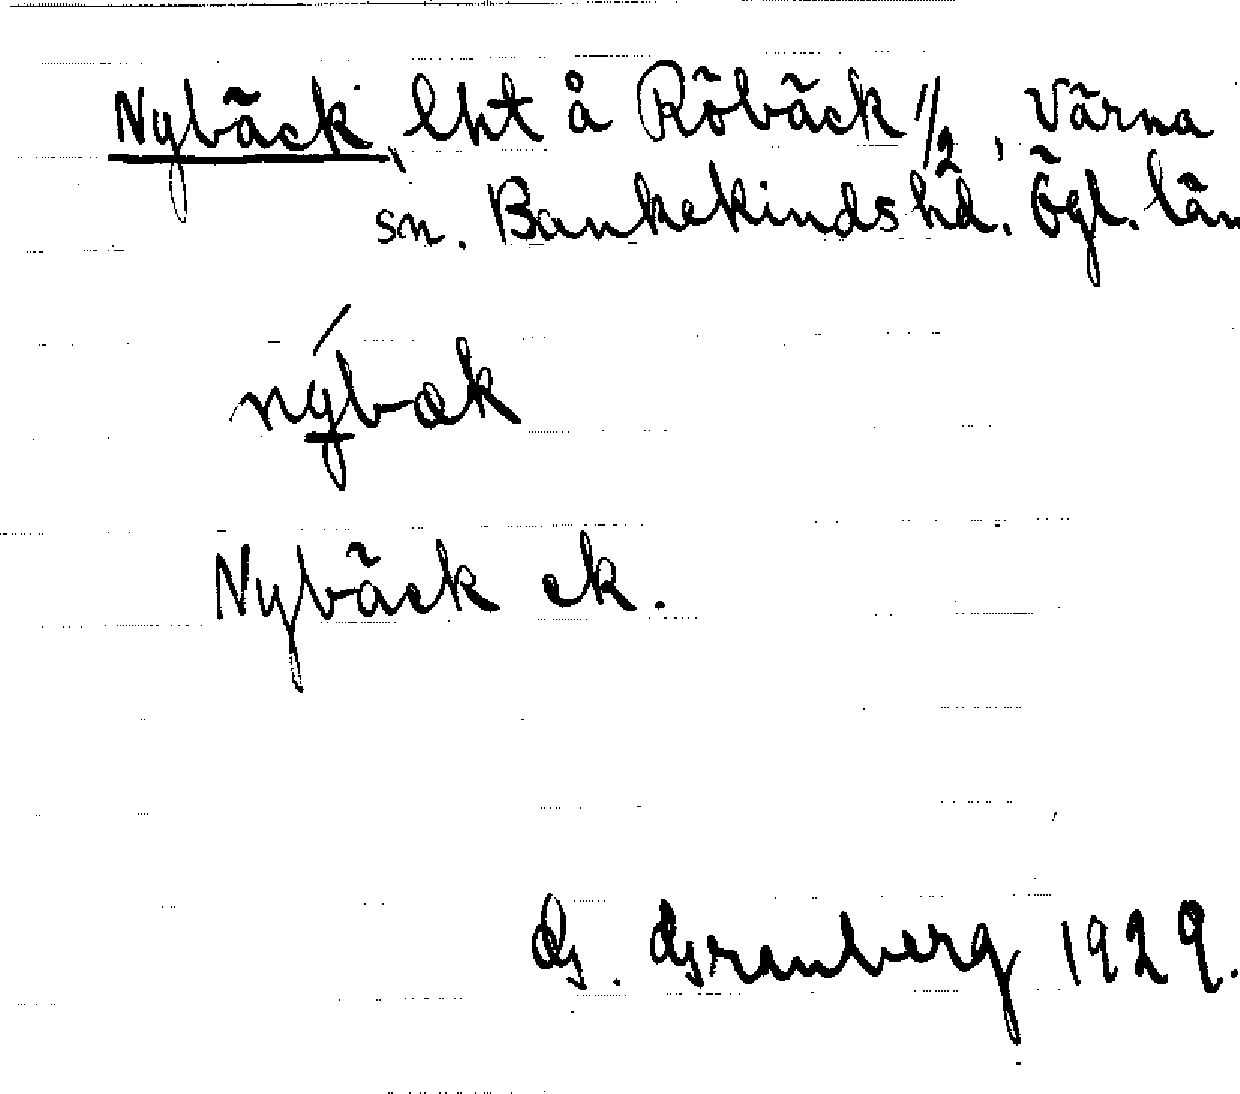 Nybäck, lht å Röbäck 1/2, Värna
sn. Bankekinds hd. Ögl. län
nýbæk
Nybäck ek.
G. Granberg 1929.